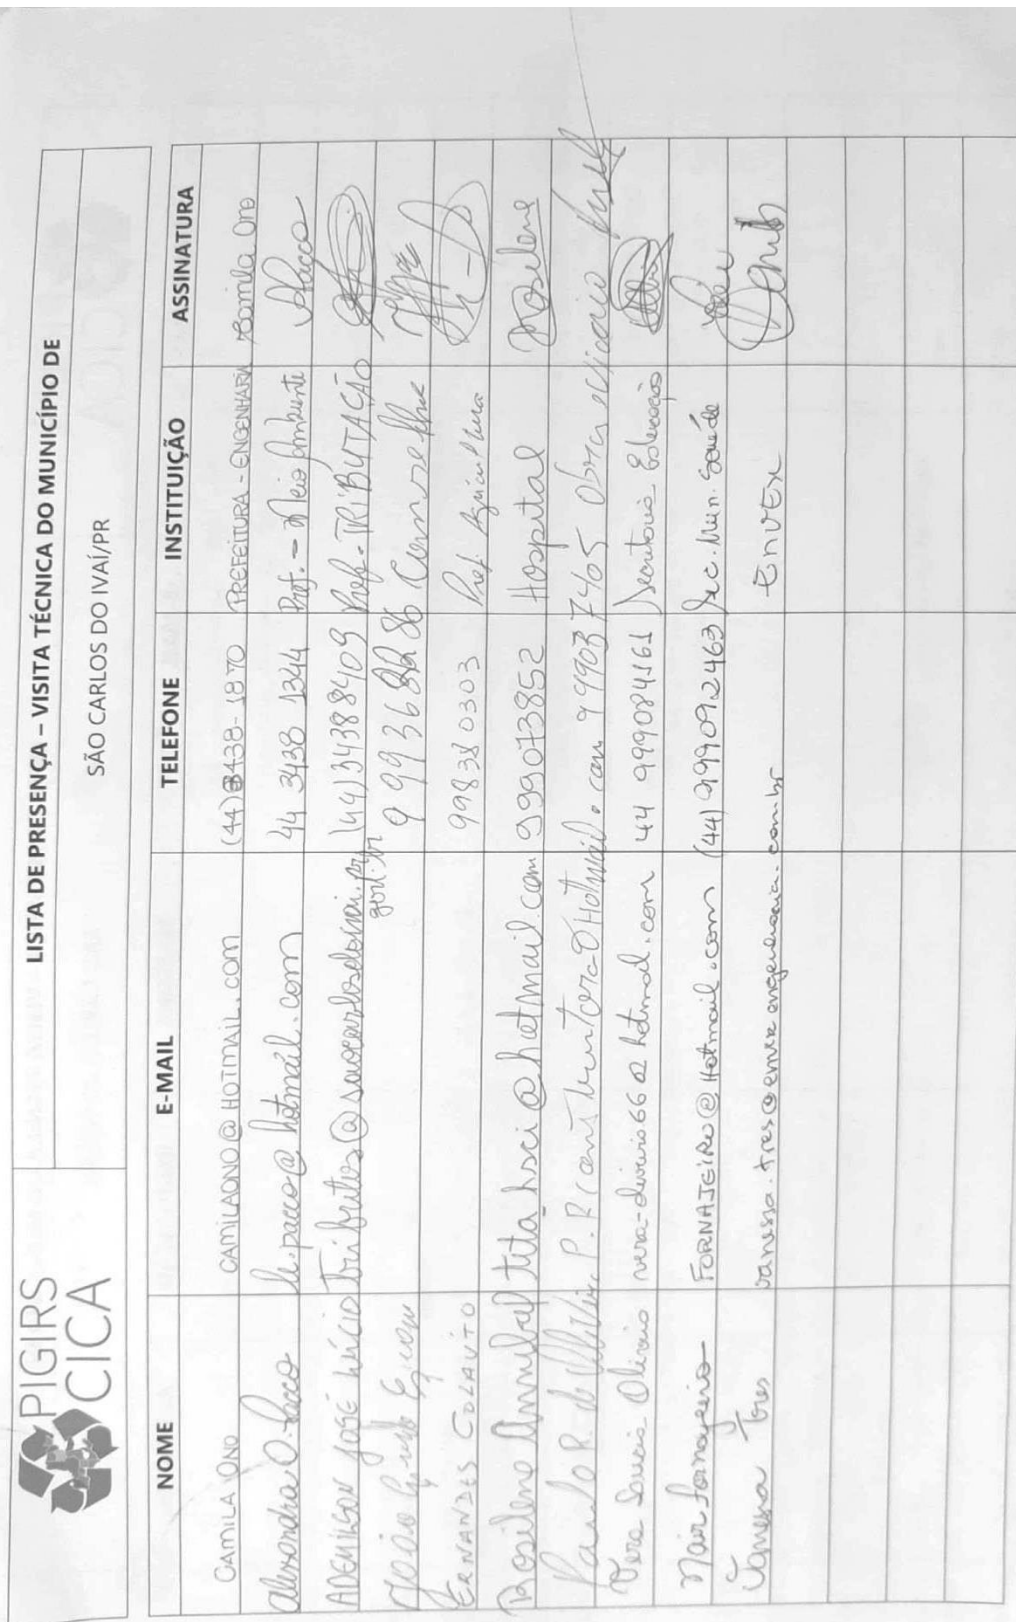 PIGIRS
CICA
LISTA DE PRESENÇA – VISITA TÉCNICA DO MUNICÍPIO DE
SÃO CARLOS DO IVAÍ/PR
NOME E-MAIL TELEFONE INSTITUIÇÃO ASSINATURA
CAMILA ONO CAMILAONO@HOTMAIL.COM (44)3438-1870 PREFEITURA - ENGENHARIA Camila Ono
Alexandra O. Pacco le.pacco@hotmail.com 44 3438 1344 Pref. - Meio Ambiente
ADEMILSON JOSÉ Lúcio Tributos@saocarlosdoivai.pr.gov.br (44)34388409 Pref. TRIBUTAÇÃO
João
ERNANDES COLAUTO 998380303 Pref. Agricultura
Rosilene Annibal teta_hsci@hotmail.com 999073852 Hospital Rosilene
Paulo R. de P.R construtora@Hotmail.com 9 99037465 Obras
Vera Lucia Oliverio vera-liverio66@hotmail.com 44 999084161 Secretaria Educação
Nair Fornajeiro FORNAJEIRO@Hotmail.com (44) 999092463 Sec. Mun. Saúde
Vanessa Tres vanessa.tres@envexengenharia.com.br EnvEx